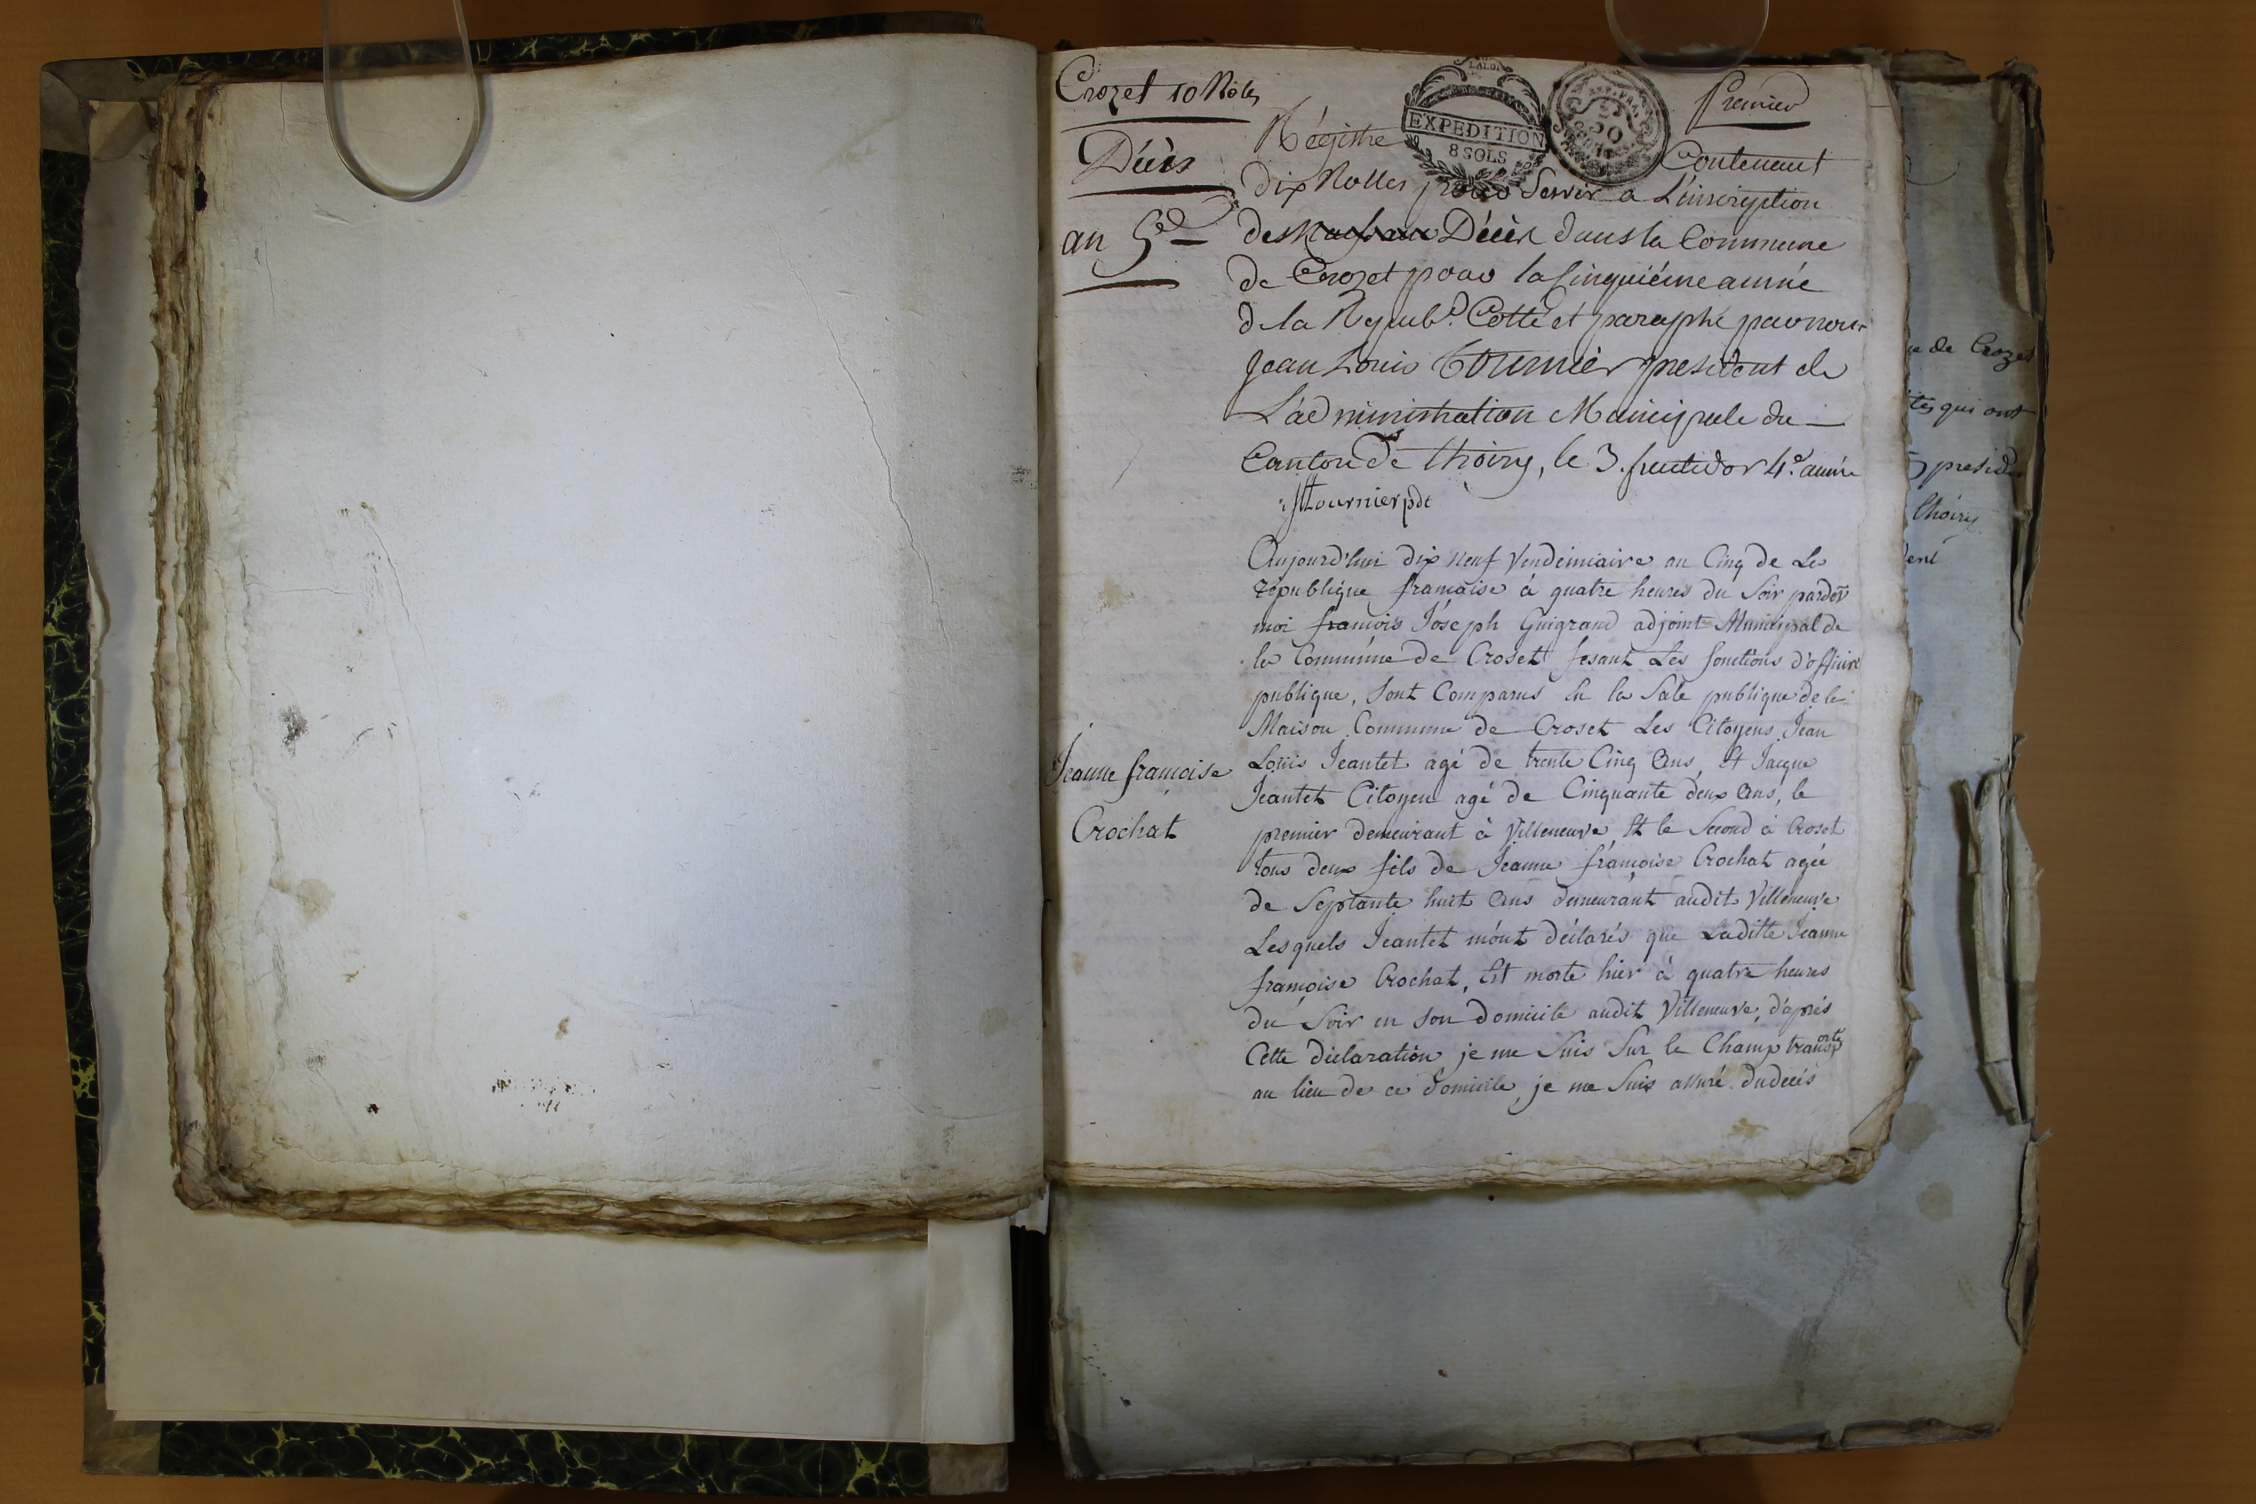 Crozet 10 Rôles
Premier
Décès
an 5e
LA LOI
EXPEDITION
8 SOLS
50
Régistre Contenant
dix Rolles pour Servir a L'inscription
des Décès dans la Commune
de Crozet pour la Cinquiéme année
de la Repub.e Cotté et paraphé par nous
Jean Louis Tournier president de
L'administration Municipale du
Canton de Thoiry, le 3. fructidor 4.e année
JLTournier pdt
Aujourd'hui dix neuf Vendémiaire an Cinq de La
République française à quatre heures du Soir pardev
moi francois Joseph Guigrand adjoint Municipal de
la Commune de Croset fesant Les fonctions d'officier
publique, Sont Comparus En la Sale publique de la
Maison Commune de Croset Les Citoyens Jean
Louis Jeantet agé de trente Cinq Ans, Et Jacque
Jeantet Citoyen agé de Cinquante deux Ans, le
premier demeurant à Villeneuve Et le Second à Croset
tous deux fils de Jeanne françoise Crochat agée
de Septante huit Ans demeurant audit Villeneuve
Lesquels Jeantet m'ont déclarés que Laditte Jeanne
françoise Crochat, Est morte hier à quatre heures
du Soir en Son domicile audit Villeneuve, d'après
Cette déclaration je me Suis Sur le Champ transporté
au lieu de ce domicile, je me Suis assuré du decès
Jeanne francoise
Crochat
de Crozet
qui ont
preside
Thoiry